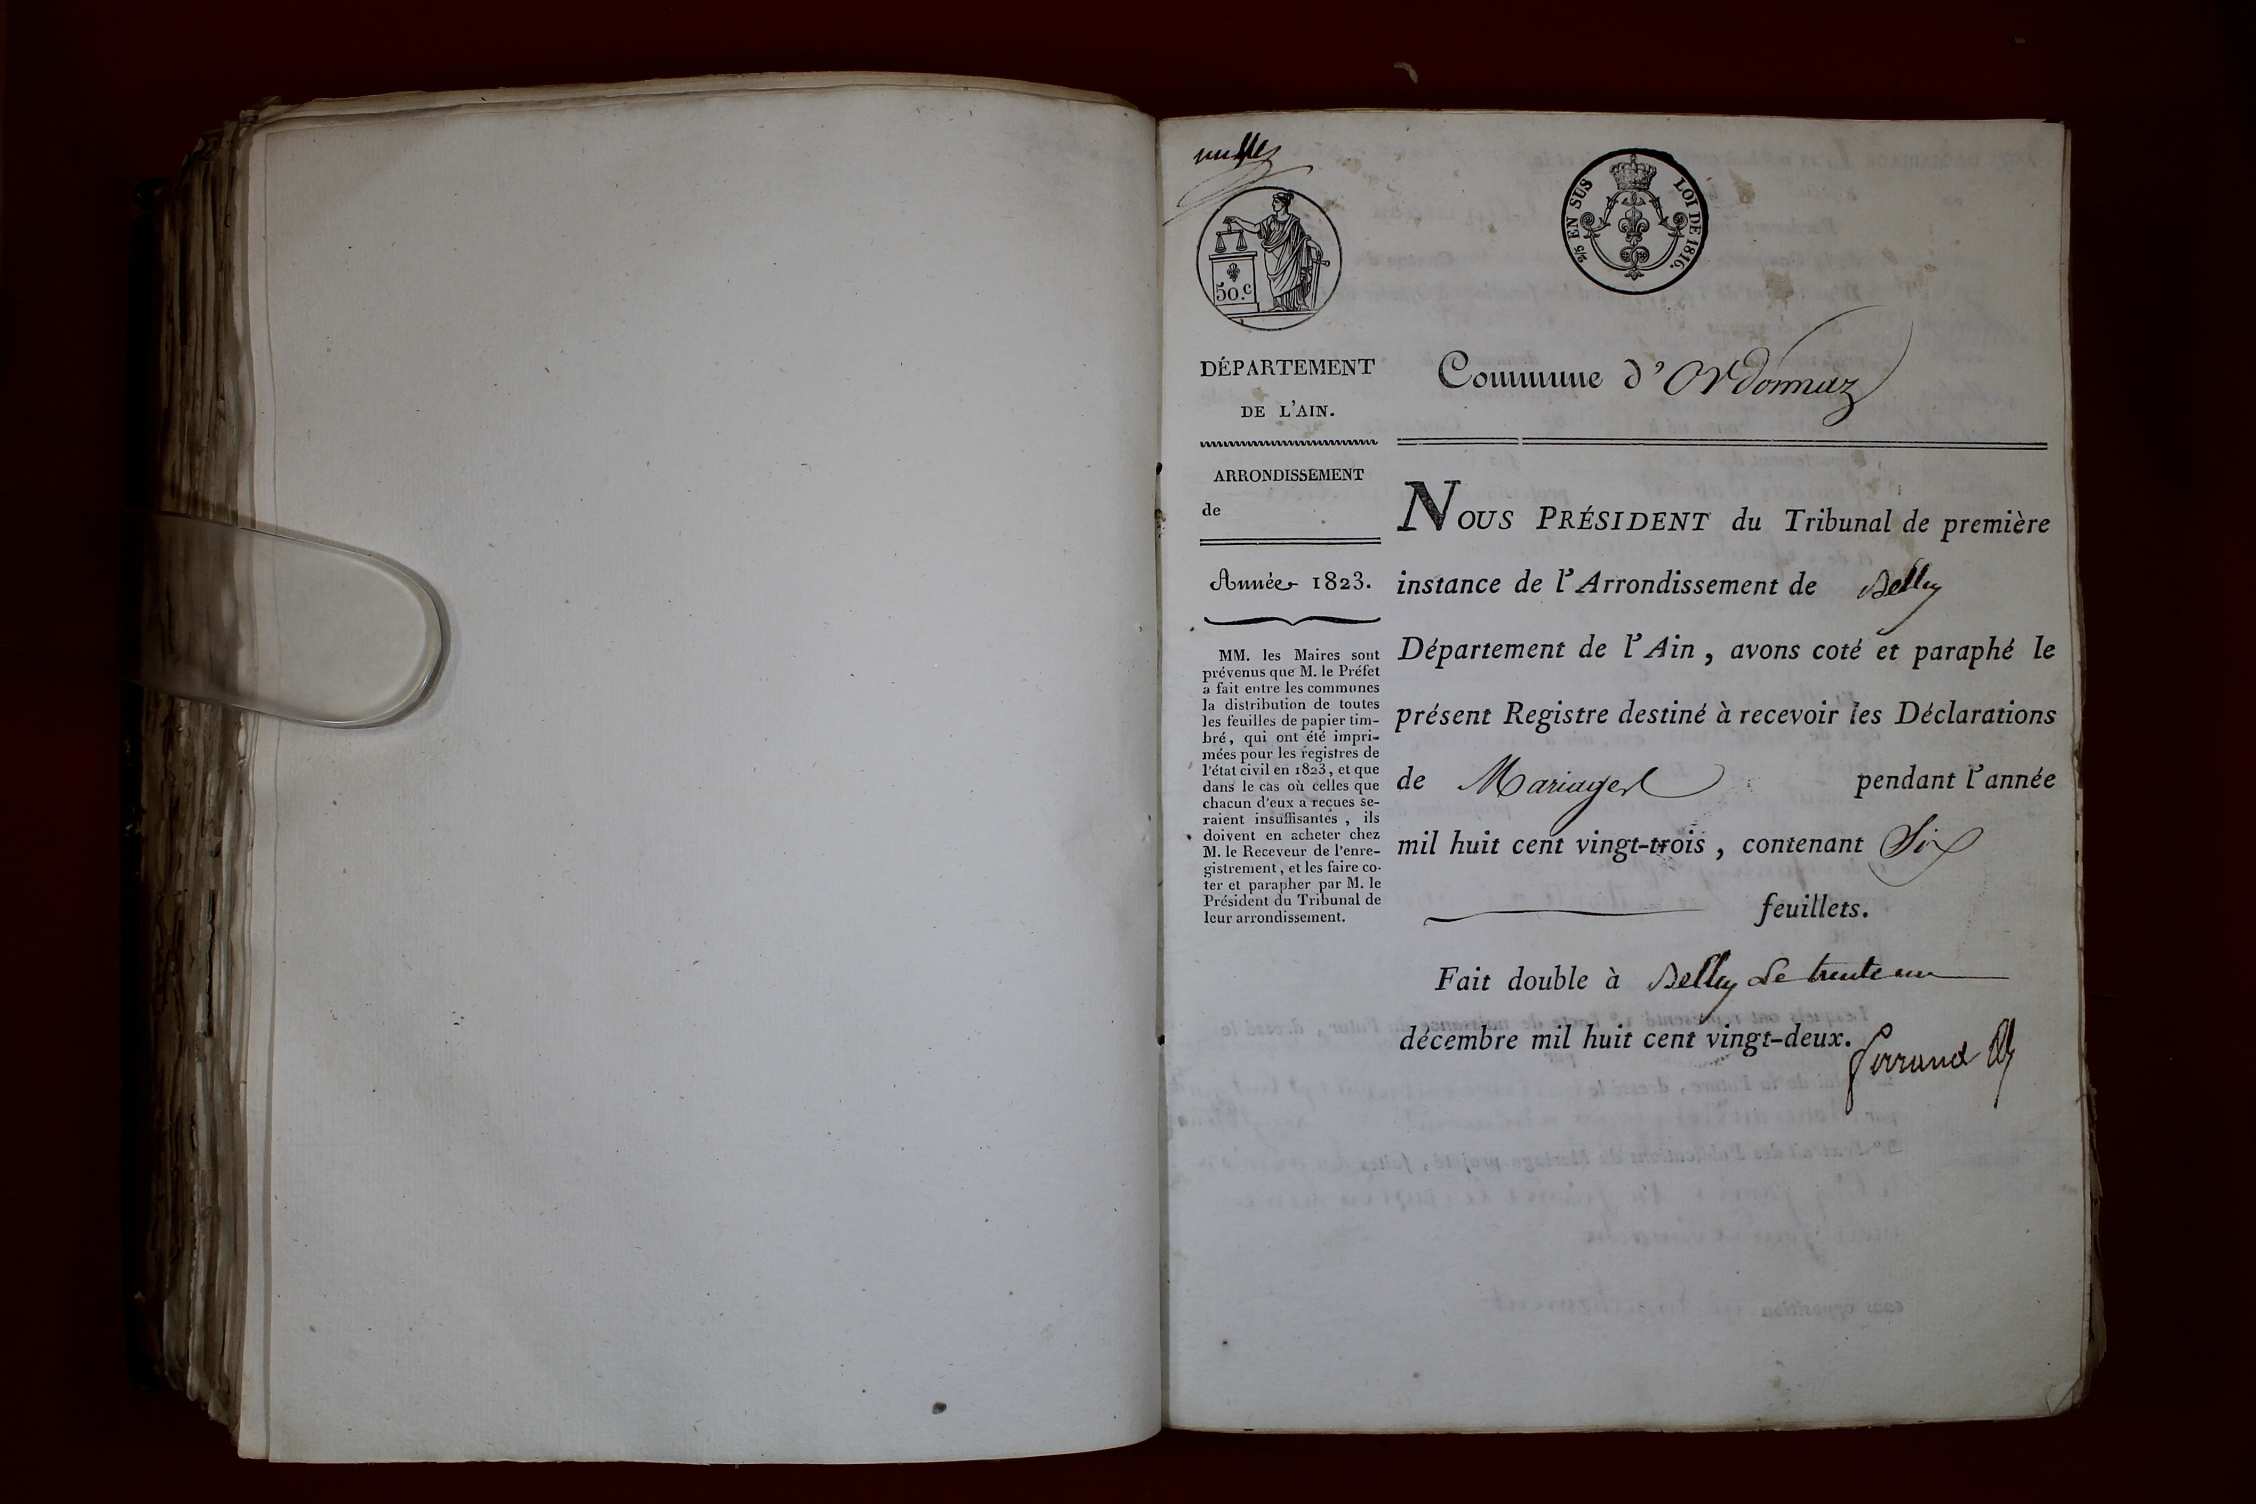 50.c
2/5 EN SUS LOI DE 1816.
DÉPARTEMENT
DE L'AIN.
ARRONDISSEMENT
de
Année 1823.
MM. les Maires sont
prévenus que M. le Préfet
a fait entre les communes
la distribution de toutes
les feuilles de papier tim-
bré, qui ont été impri-
mées pour les registres de
l'état civil en 1823, et que
dans le cas où celles que
chacun d'eux a reçues se-
raient insuffisantes, ils
doivent en acheter chez
M. le Receveur de l'enre-
gistrement, et les faire co-
ter et parapher par M. le
Président du Tribunal de
leur arrondissement.
Commune d'Ordonnaz
NOUS PRÉSIDENT du Tribunal de première
instance de l'Arrondissement de Belley
Département de l'Ain, avons coté et paraphé le
présent Registre destiné à recevoir les Déclarations
de Mariages pendant l'année
mil huit cent vingt-trois, contenant Six
feuillets.
Fait double à Belley Le trente un
décembre mil huit cent vingt-deux.